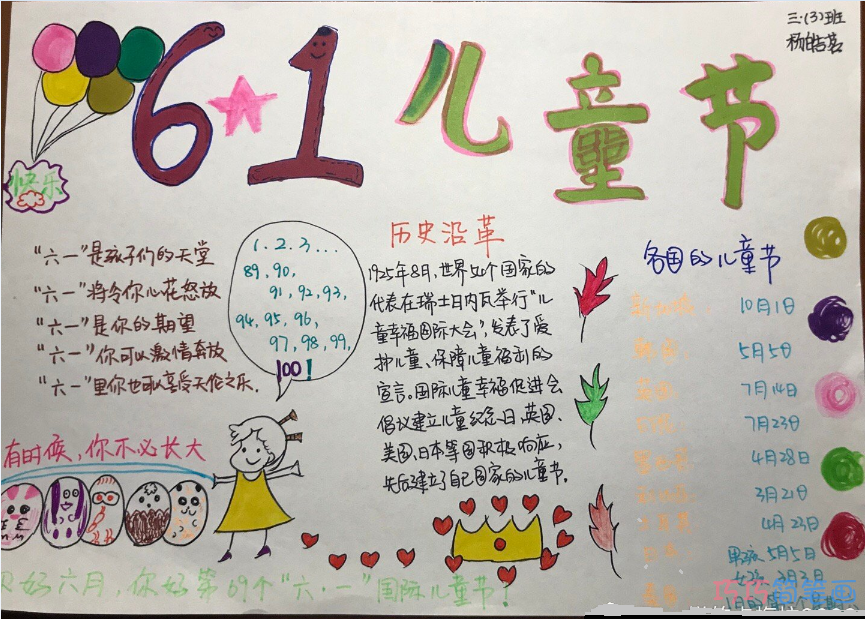 三.(3)班
杨皓茗
6 1 儿童节
快乐
"六一"是孩子们的天堂
"六一"将令你心花怒放
"六一"是你的期望
"六一"你可以激情奔放
"六一"里你也可以享受天伦之乐.
1.2.3...
89,90,
91,92,93,
94,95,96,
97,98,99,
100!
有时候,你不必长大
历史沿革
1925年8月,世界54个国家的
代表在瑞士日内瓦举行"儿
童幸福国际大会",发表了爱
护儿童、保障儿童福利的
宣言。国际儿童幸福促进会
倡议建立儿童纪念日,英国、
美国、日本等国积极响应,
先后建立了自己国家的儿童节。
各国的儿童节
10月1日
5月5日
7月14日
7月23日
4月28日
3月21日
4月23日
男孩 5月5日
女孩 3月3日
好六月,你好第69个"六·一"国际儿童节!
巧巧简笔画